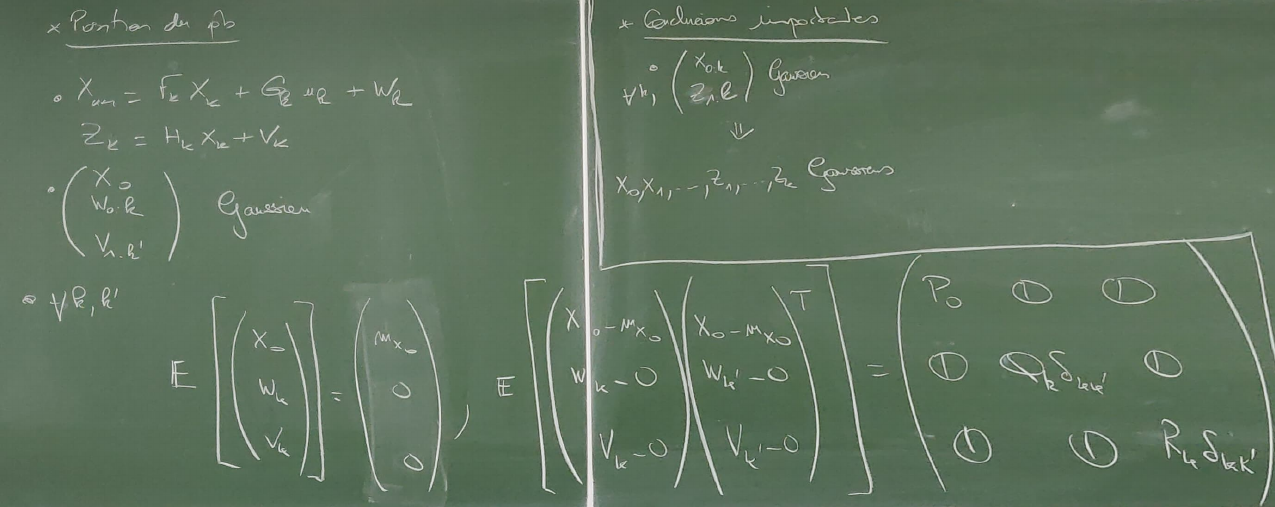 * Position du pb
• X_{k+1} = F_k X_k + G_k u_k + W_k
Z_k = H_k X_k + V_k
• (X_0 W_{0:k} V_{1:k'}) Gaussien
• ∀k, k'
E[(X_0 W_k V_k)] = (m_{X_0} 0 0), E[(X_0 - m_{X_0} W_k - 0 V_k - 0)(X_0 - m_{X_0} W_{k'} - 0 V_{k'} - 0)^T] = (P_0 0 0 0 Q_k δ_{kk'} 0 0 0 R_k δ_{kk'})
* Conclusions importantes
• ∀k, (X_{0:k} Z_{1:k}) Gaussien
⇓
X_0, X_1, ..., Z_1, ..., Z_k Gaussiens